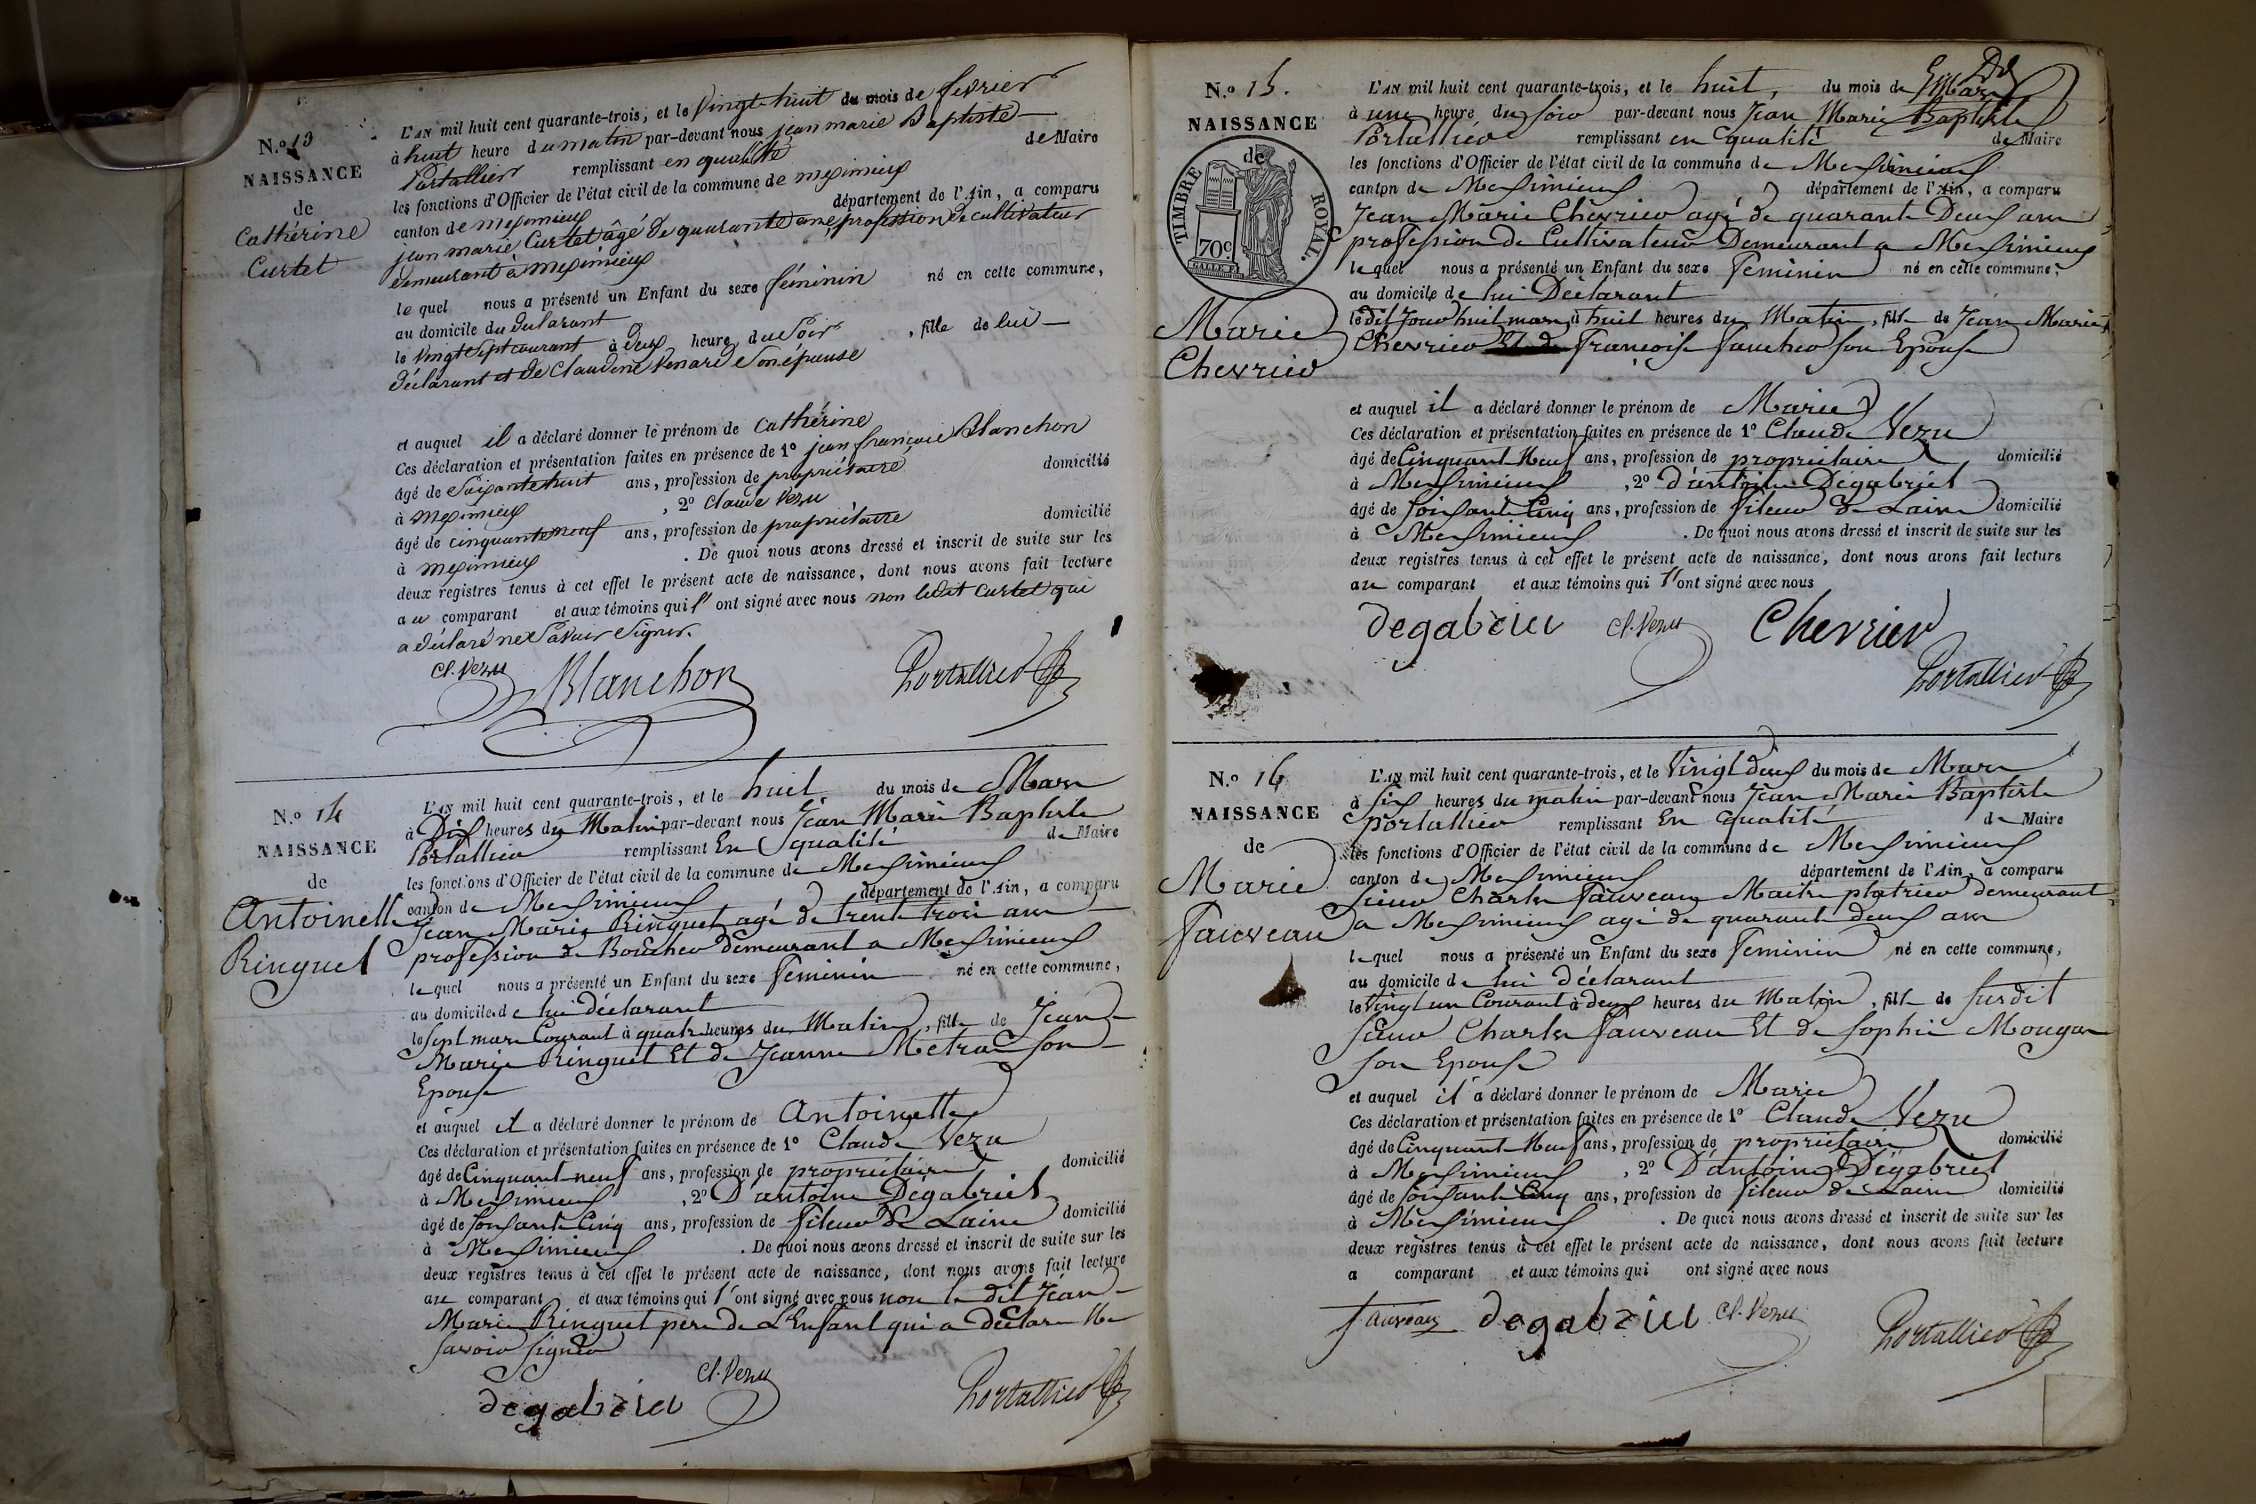 N.o 13
NAISSANCE
de
Cathérine
Curtet
L'AN mil huit cent quarante-trois, et le Vingt-huit du mois de fevrier
à huit heure du matin par-devant nous jean marie Baptiste
Portallier remplissant en qualité de Maire
les fonctions d'Officier de l'état civil de la commune de meximieux
canton de meximieux département de l'Ain, a comparu
jean marie Curtet âgé de quarante ans profession de cultivateur
demeurant à meximieux
le quel nous a présenté un Enfant du sexe féminin né en cette commune,
au domicile du déclarant
le vingt sept courant à deux heure du soir, fille de lui
déclarant et de Claudine Venard son épouse
et auquel il a déclaré donner le prénom de Cathérine
Ces déclaration et présentation faites en présence de 1º jean françois Blanchon
âgé de Soixante huit ans, profession de propriétaire domicilié
à meximieux, 2º Claude Vezu
âgé de cinquante neuf ans, profession de propriétaire domicilié
à meximieux. De quoi nous avons dressé et inscrit de suite sur les
deux registres tenus à cet effet le présent acte de naissance, dont nous avons fait lecture
au comparant et aux témoins qui l'ont signé avec nous non ledit Curtet qui
a déclaré ne Savoir Signer.
Cl. Vezu Blanchon Portallier
N.o 14
NAISSANCE
de
Antoinette
Ringuet
L'AN mil huit cent quarante-trois, et le huit du mois de Mars
à Dix heures du Matin par-devant nous Jean Marie Baptiste
Portallier remplissant En qualité de Maire
les fonctions d'Officier de l'état civil de la commune de Meximieux
canton de Meximieux département de l'Ain, a comparu
Jean Marie Ringuet agé de trente trois ans
profession de Boucher demeurant a Meximieux
le quel nous a présenté un Enfant du sexe Feminin né en cette commune,
au domicile de lui déclarant
le Sept mars Courant à quatre heures du Matin, fille de Jean
Marie Ringuet Et de Jeanne Metra Son
Epouse
et auquel il a déclaré donner le prénom de Antoinette
Ces déclaration et présentation faites en présence de 1º Claude Vezu
âgé de Cinquante neuf ans, profession de propriétaire domicilié
à Meximieux, 2º D'antoine Dégabriel
âgé de soixante Cinq ans, profession de fileur de Laine domicilié
à Meximieux. De quoi nous avons dressé et inscrit de suite sur les
deux registres tenus à cet effet le présent acte de naissance, dont nous avons fait lecture
au comparant et aux témoins qui l'ont signé avec nous non le dit Jean
Marie Ringuet père de L'Enfant qui a déclaré Ne
savoir signer
degabriel Cl. Vezu Portallier
N.o 15.
NAISSANCE
de
TIMBRE ROYAL.
70c
Marie
Chevrier
L'AN mil huit cent quarante-trois, et le huit, du mois de Mars
à une heure du soir par-devant nous Jean Marie Baptiste
Portallier remplissant en qualité de Maire
les fonctions d'Officier de l'état civil de la commune de Meximieux
canton de Meximieux département de l'Ain, a comparu
Jean Marie Chevrier agé de quarante Deux ans
profession de Cultivateur Demeurant a Meximieux
le quel nous a présenté un Enfant du sexe Feminin né en cette commune,
au domicile de lui Déclarant
le dit Jour huit mars à huit heures du Matin, fille de Jean Marie
Chevrier Et de Francoise Faucher son Epouse
et auquel il a déclaré donner le prénom de Marie
Ces déclaration et présentation faites en présence de 1º Claude Vezu
âgé de Cinquante Neuf ans, profession de propriétaire domicilié
à Meximieux, 2º D'antoine Dégabriel
âgé de soixante Cinq ans, profession de fileur de Laine domicilié
à Meximieux. De quoi nous avons dressé et inscrit de suite sur les
deux registres tenus à cet effet le présent acte de naissance, dont nous avons fait lecture
au comparant et aux témoins qui l'ont signé avec nous
degabriel Cl. Vezu Chevrier
Portallier
N.o 16
NAISSANCE
de
Marie
Fauveau
L'AN mil huit cent quarante-trois, et le Vingt deux du mois de Mars
à Six heures du matin par-devant nous Jean Marie Baptiste
Portallier remplissant En qualité de Maire
les fonctions d'Officier de l'état civil de la commune de Meximieux
canton de Meximieux département de l'Ain, a comparu
Sieur Charles Fauveau Maitre platrier demeurant
a Meximieux agé de quarante deux ans
le quel nous a présenté un Enfant du sexe Feminin né en cette commune,
au domicile de lui déclarant
le Vingt un Courant à deux heures du Matin, fille de Susdit
Sieur Charles Fauveau Et de Sophie Mougan
son Epouse
et auquel il a déclaré donner le prénom de Marie
Ces déclaration et présentation faites en présence de 1º Claude Vezu
âgé de Cinquante Neuf ans, profession de propriétaire domicilié
à Meximieux, 2º D'antoine Dégabriel
âgé de soixante Cinq ans, profession de fileur de Laine domicilié
à Meximieux. De quoi nous avons dressé et inscrit de suite sur les
deux registres tenus à cet effet le présent acte de naissance, dont nous avons fait lecture
a comparant et aux témoins qui ont signé avec nous
fauveau degabriel Cl. Vezu Portallier